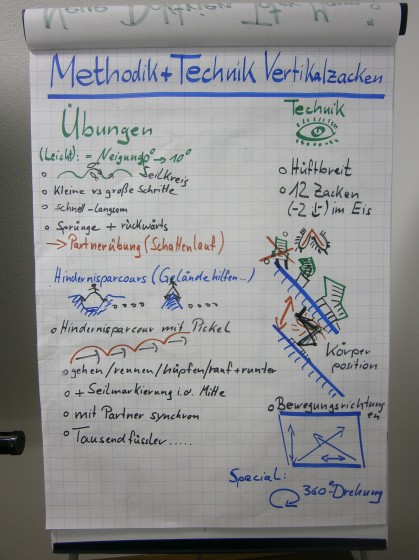 Methodik + Technik Vertikalzacken
Übungen
(Leicht): = Neigung 0° → 10°
Seilkreis
Kleine vs große Schritte
Schnell - langsam
Sprünge + rückwärts
→ Partnerübung (Schattenlauf)
Hindernisparcours (Geländehilfen...)
Hindernisparcour mit Pickel
gehen/rennen/hüpfen/rauf+runter
+ Seilmarkierung i.d. Mitte
mit Partner synchron
Tausendfüssler.....
Technik
Hüftbreit
12 Zacken
(-2 :-) im Eis
Körper
position
Bewegungsrichtung
en
Special:
360° Drehung